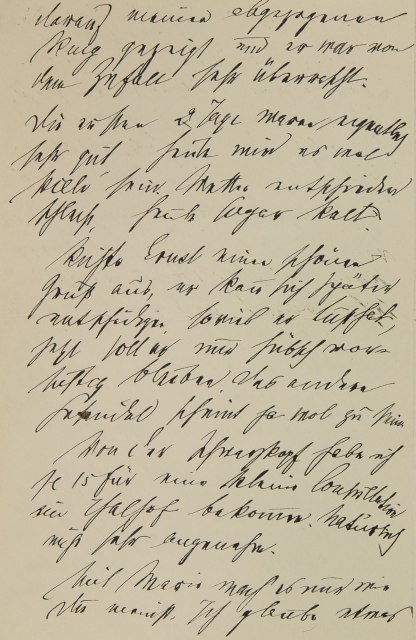 daraus meinen abgezogenen
gezeigt und er war von
dem Zufall sehr überrascht.
Die ersten 2 Tage waren eigentlich
sehr gut heute wird es wol
sein. Wetter entschieden
schlecht, heute sogar kalt.
Richte Ernst einen schönen
Gruß aus, er kann sich später
entschuldigen, soviel er
jetzt soll er nur hübsch vor-
bleiben. Das andere
scheint ja wol zu
Von der habe ich
je 15 für eine kleine Consultation
im bekommen. Natürlich
mir sehr angenehm.
Mit Marie mach es nur wie
Du meinst. Ich glaube etwas